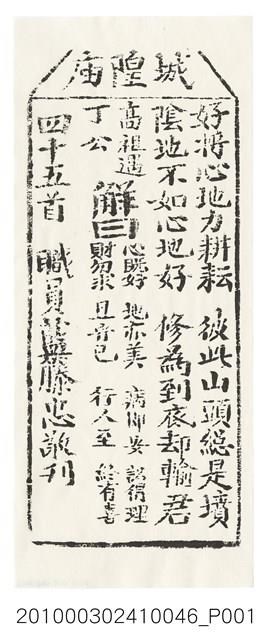 城隍庙
好將心地力耕耘 彼此山頭總是墳
陰地不如心地好 修為到底却輸君
高祖遇
丁公
解曰
心既好 地亦美 病即安 訟得理
財勿求 且音已 行人至 終有喜
四十五首 職員 滕忠敬刊
201000302410046_P001